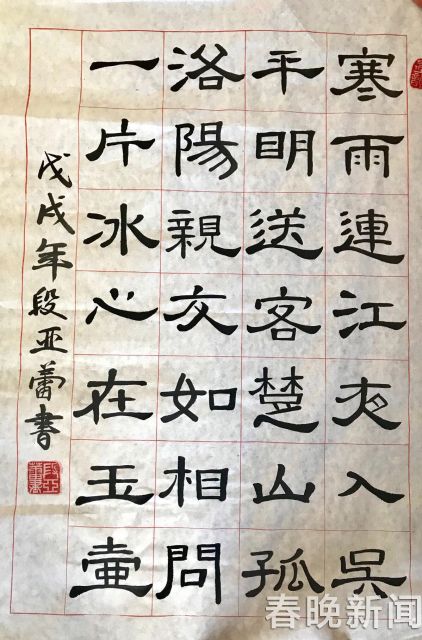 寒雨連江夜入吳
平明送客楚山孤
洛陽親友如相問
一片冰心在玉壷
戊戌年段亚蕾書
段亚蕾書
春晚新闻